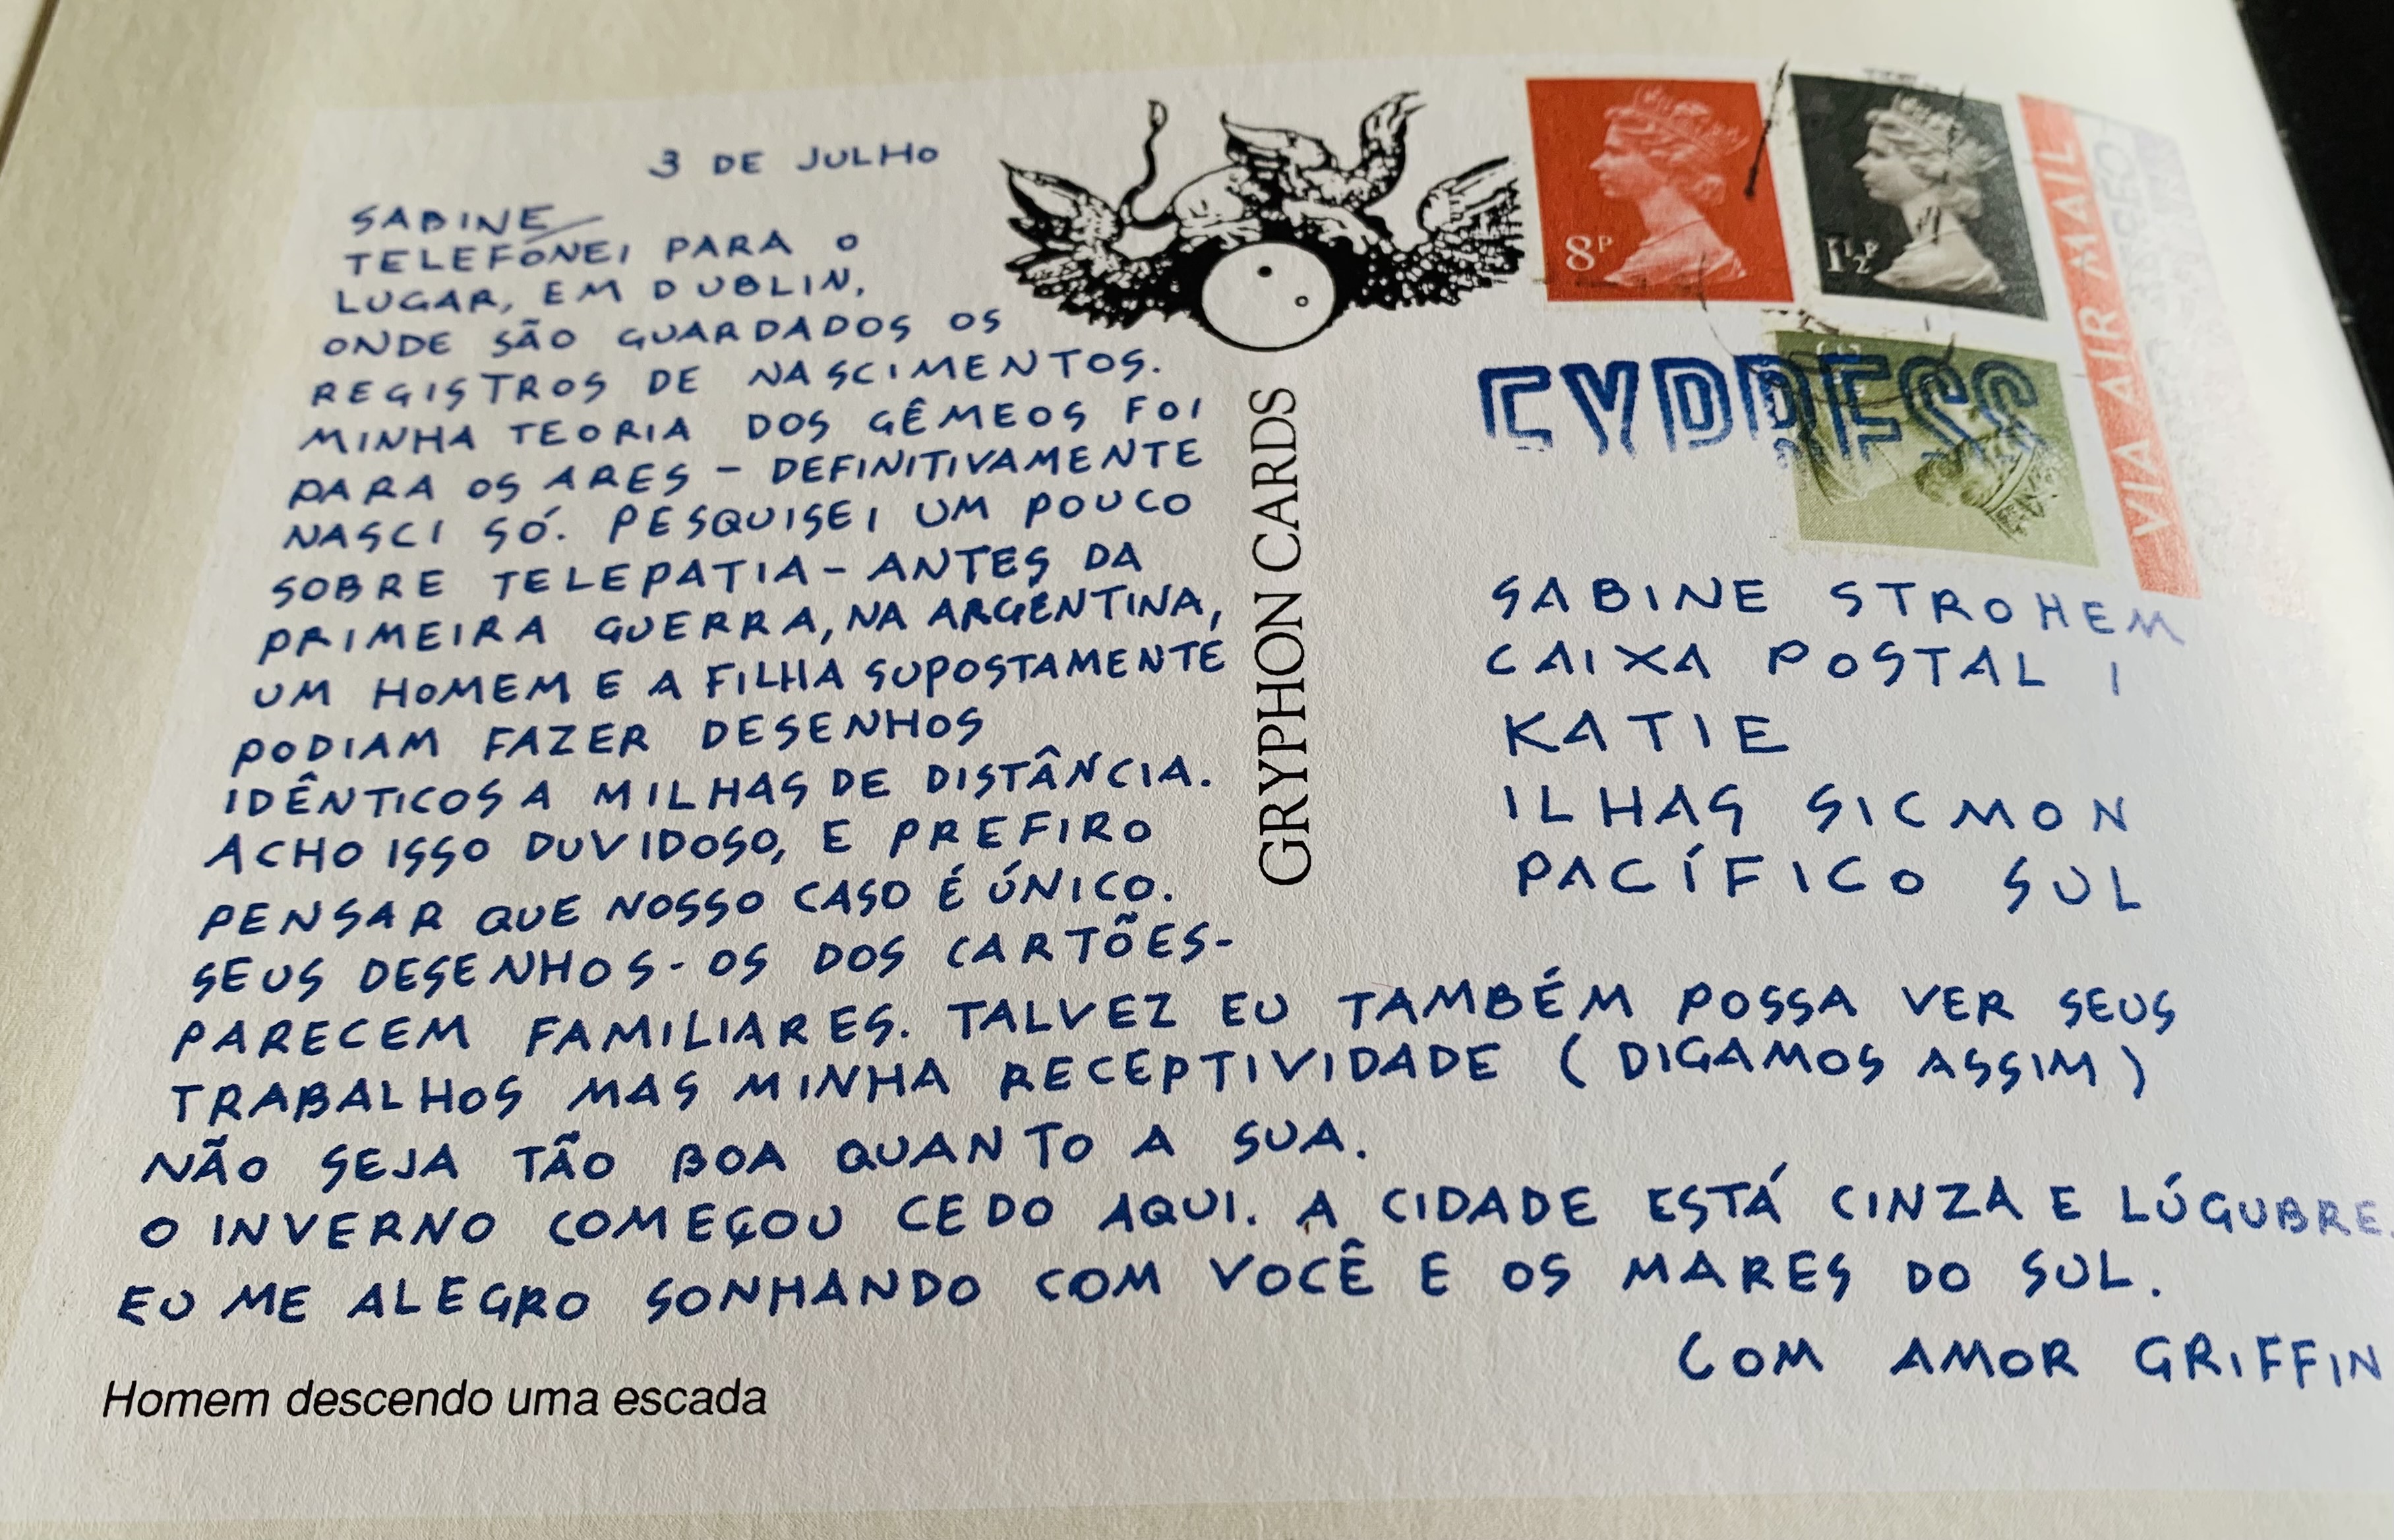 3 DE JULHO
SABINE
TELEFONEI PARA O
LUGAR, EM DUBLIN,
ONDE SÃO GUARDADOS OS
REGISTROS DE NASCIMENTOS.
MINHA TEORIA DOS GÊMEOS FOI
PARA OS ARES – DEFINITIVAMENTE
NASCI SÓ. PESQUISEI UM POUCO
SOBRE TELEPATIA – ANTES DA
PRIMEIRA GUERRA, NA ARGENTINA,
UM HOMEM E A FILHA SUPOSTAMENTE
PODIAM FAZER DESENHOS
IDÊNTICOS A MILHAS DE DISTÂNCIA.
ACHO ISSO DUVIDOSO, E PREFIRO
PENSAR QUE NOSSO CASO É ÚNICO.
SEUS DESENHOS - OS DOS CARTÕES -
PARECEM FAMILIARES. TALVEZ EU TAMBÉM POSSA VER SEUS
TRABALHOS MAS MINHA RECEPTIVIDADE (DIGAMOS ASSIM)
NÃO SEJA TÃO BOA QUANTO A SUA.
O INVERNO COMEÇOU CEDO AQUI. A CIDADE ESTÁ CINZA E LÚGUBRE.
EU ME ALEGRO SONHANDO COM VOCÊ E OS MARES DO SUL.
COM AMOR GRIFFIN
Homem descendo uma escada
GRYPHON CARDS
8P
1½P
VIA AIR MAIL
SABINE STROHEM
CAIXA POSTAL 1
KATIE
ILHAS SICMON
PACÍFICO SUL